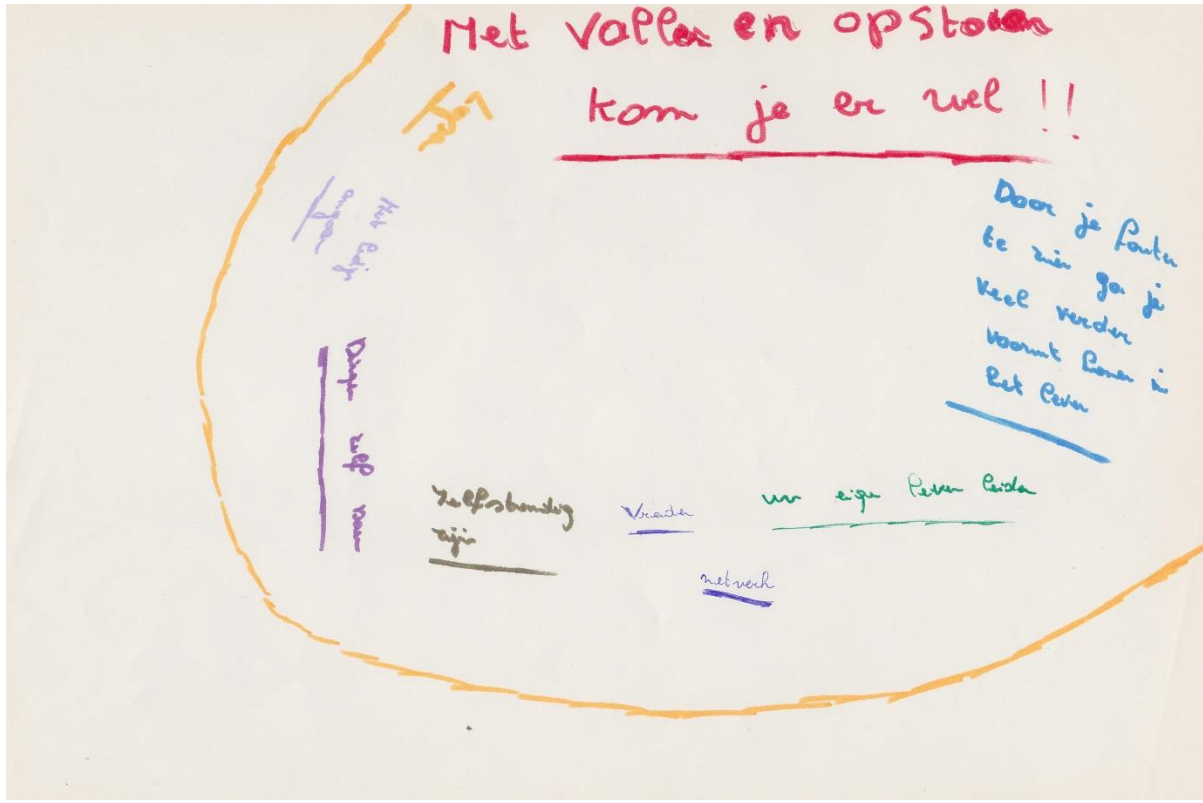 Met Vallen en opstaan
kom je er wel !!
Door je fouten
te zien ga je
veel verder
vooruit komen in
het leven
Het lidje
angaan
Dingen zelf doen
Zelfstanding
zijn
Vrienden
netwerk
uw eigen leven leiden